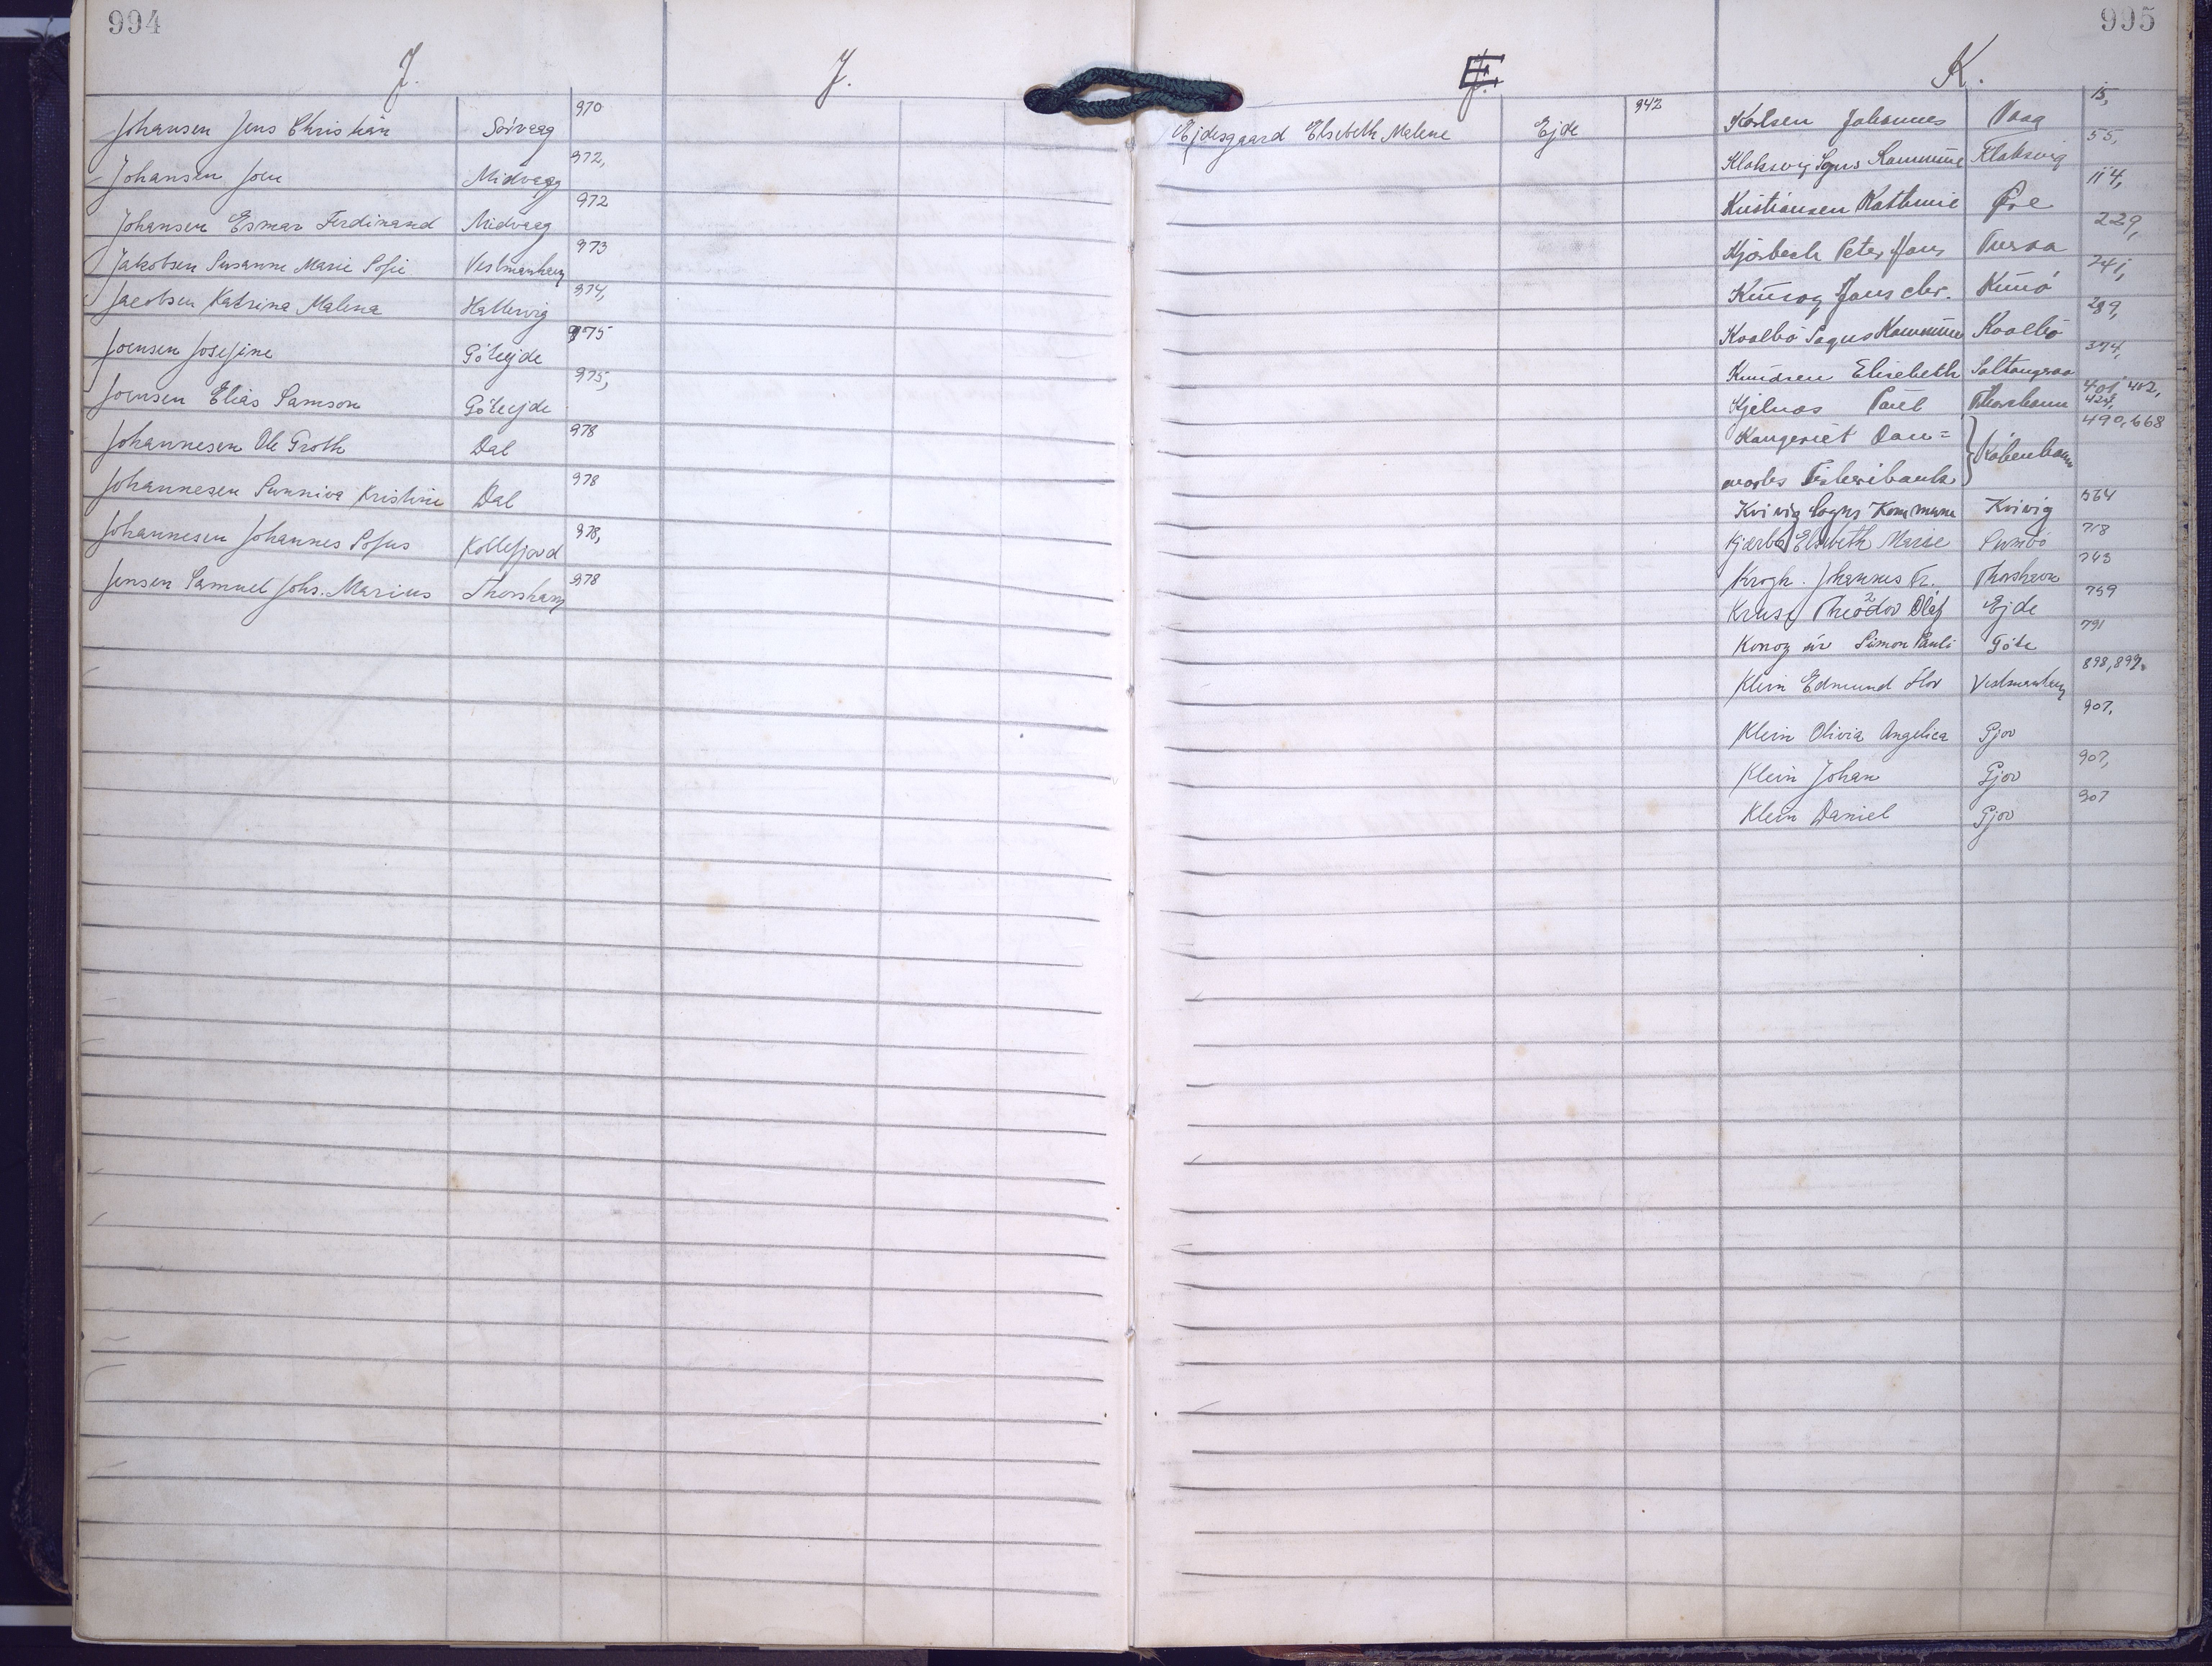 994
J.
Johansen Jens Christian Sörvaag 970
Johansen Joen Midvaag 972,
Johansen Esmar Ferdinand Midvaag 972
Jakobsen Susanne Marie Sofie Vestmanhavn 973
Jacobsen Katrina Malena Hattervig 974,
Joensen Josefine Götuejde 975
Joensen Elias Samson Götuejde 975,
Johannesen Ole Groth Dal 978
Johannesen Sunniva Kristine Dal 978
Johannesen Johannes Sofus Kollefjord 978,
Jensen Samuel Johs. Marius Thorshavn 978
J.
995
E
Ejdesgaard Elsebeth Malene Ejde 942
K.
Karlsen Johannes Vaag 15,
Klaksvig Sogns Kommune Klaksvig 55,
Kristiansen Kathrine Öre 114,
Kjærbech Peter Hans Tveraa 229,
Kunoy Hans Chr. Kunö 241,
Kvalbö Sogns Kommune Kvalbö 289,
Knudsen Elisebeth Saltangeraa 374,
Kjelnæs Paul Thorshavn 401, 402, 424,
Kongeriet Dan= 490, 668
marks Fiskeribank København
Kvivig Sogns Kommune Kvivig 564
Kjærbo Elsebeth Marie Sumbö 718
Krogh. Johannes Fr. Thorshavn 743
Kruse Theodor Olaf Ejde 759
2
Konoy úr Simon Pauli Göte 791
Klein Edmund Flor Vestmanhavn 898, 899.
Klein Olivia Angelica Gjov 907,
Klein Johan Gjov 907,
Klein Daniel Gjov 907